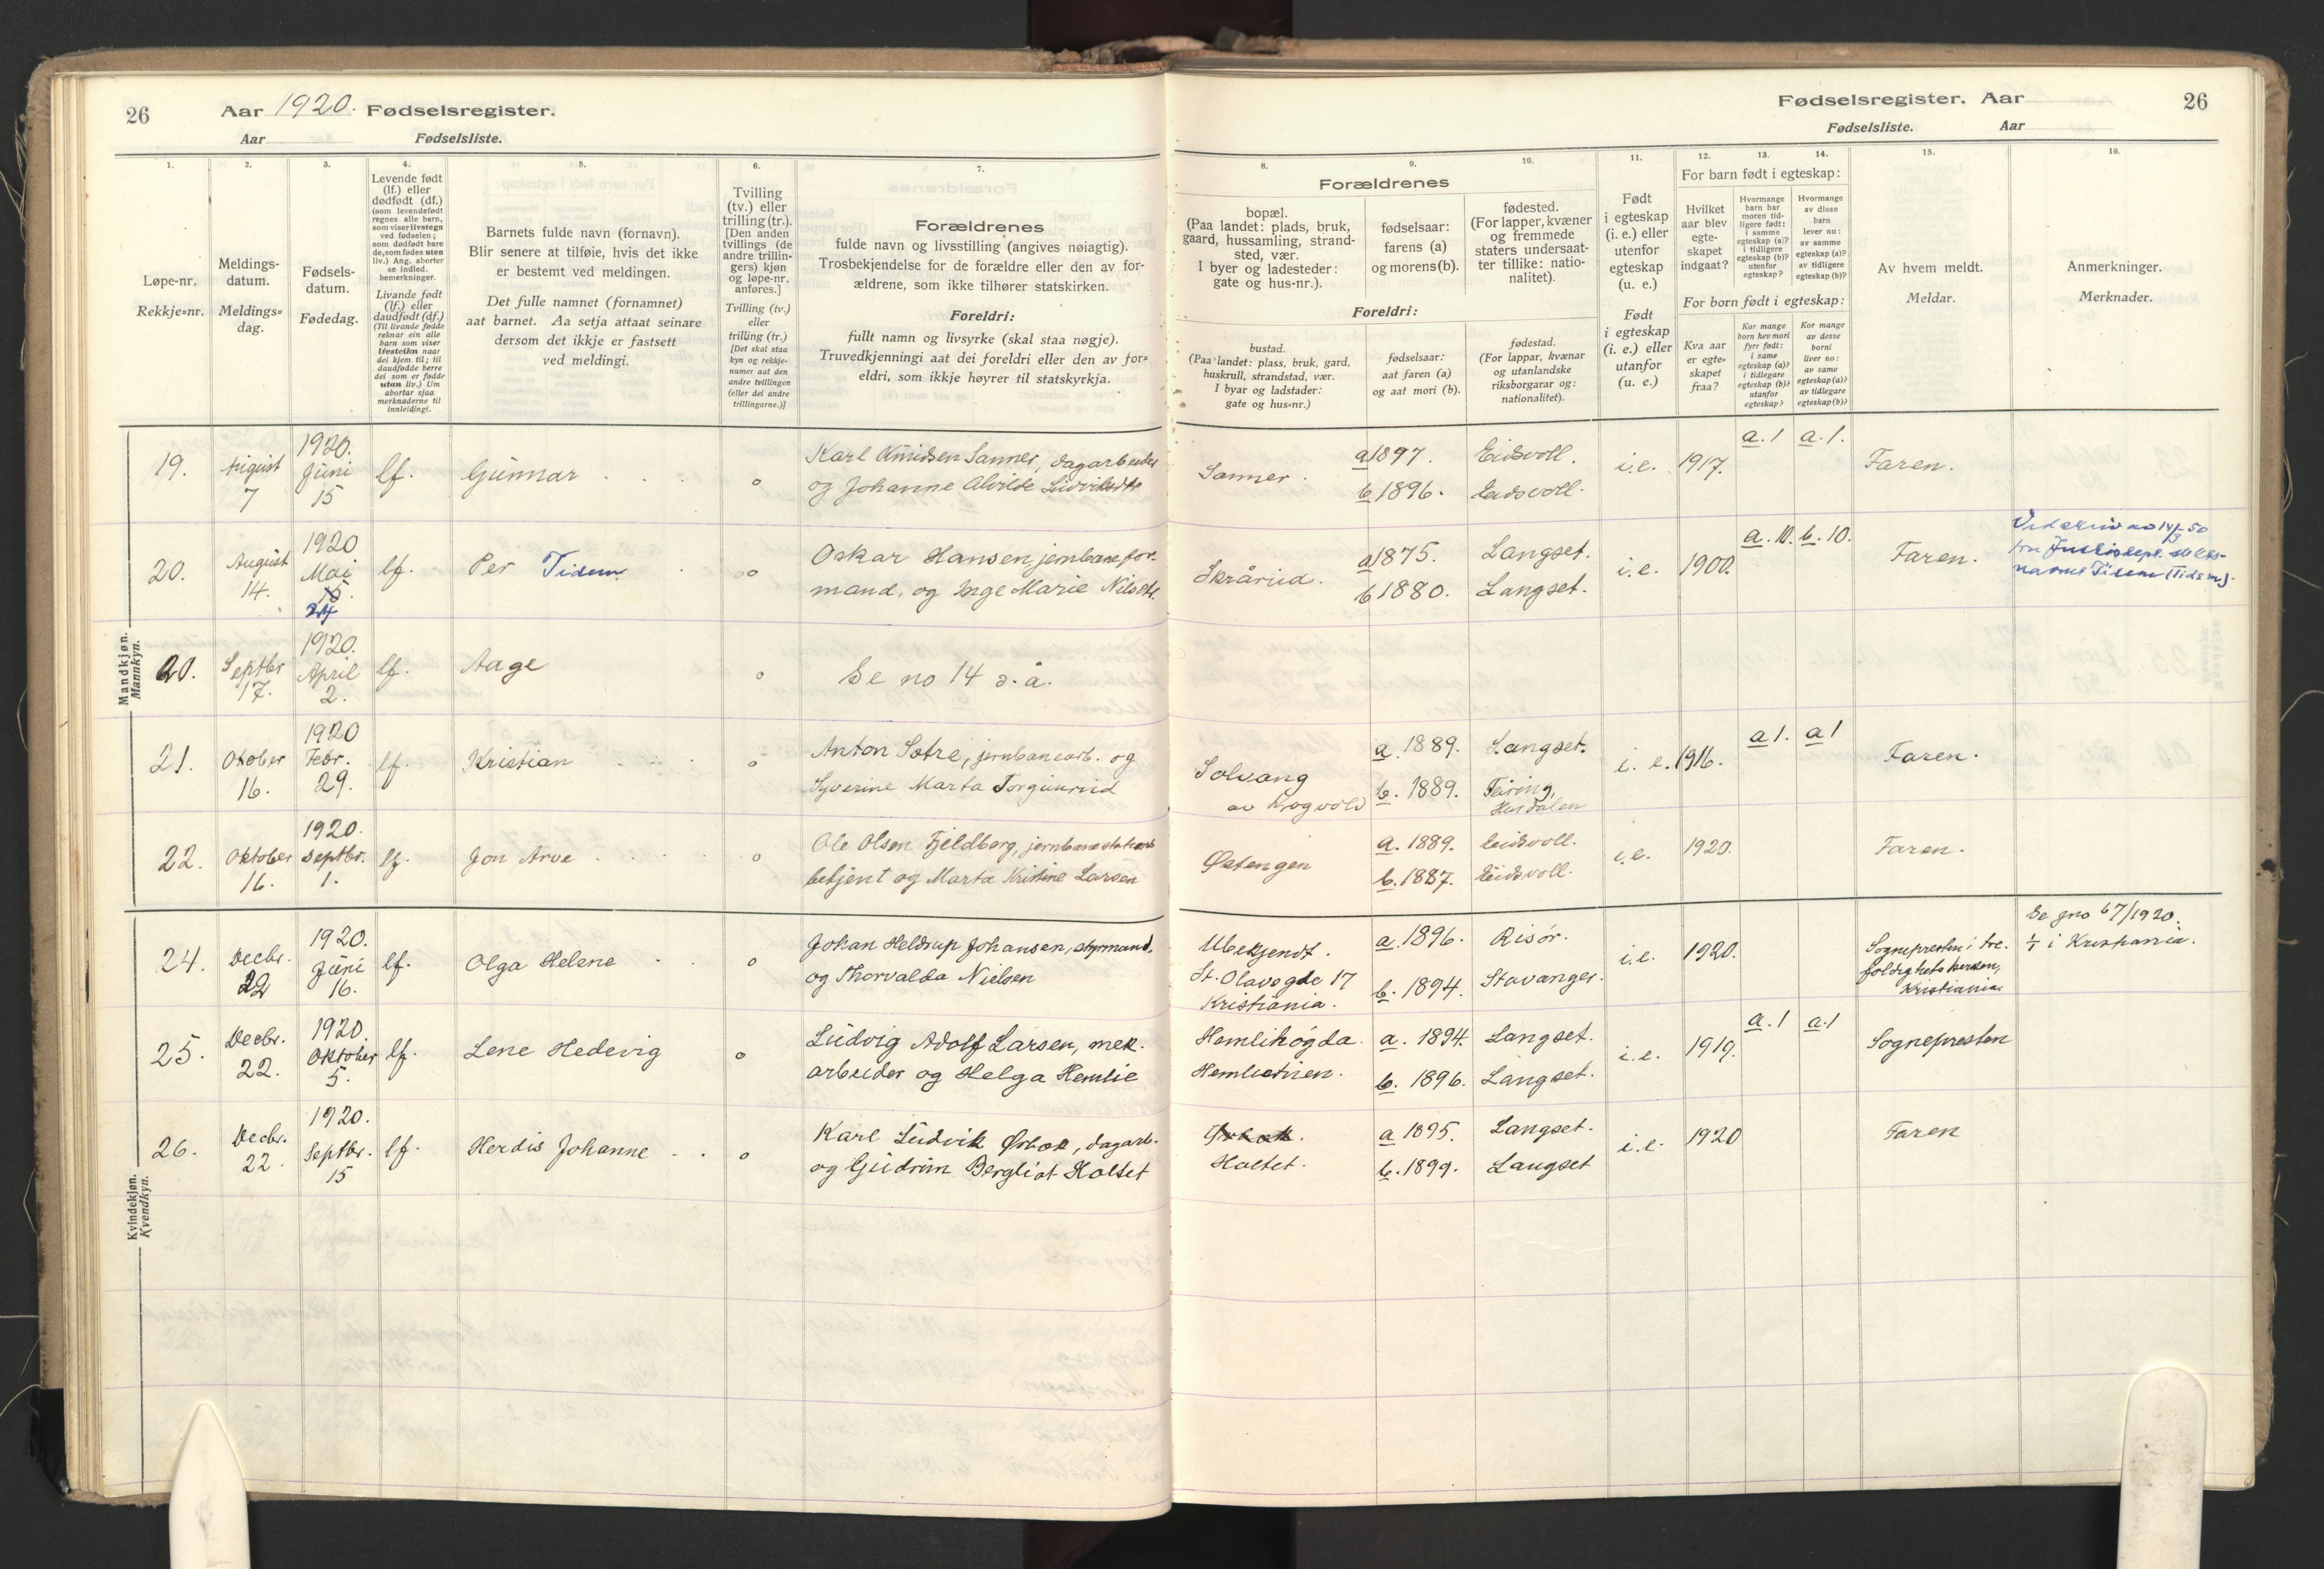 26
Aar 1920. Fødselsregister.
Aar
Fødselsliste.
Fødselsregister. Aar
26
Fødselsliste.
Aar
1.
Løpe-nr.
Rekkje=nr.
2.
Meldings-
datum.
Meldings=
dag.
3.
Fødsels-
datum.
Fødedag.
4.
Levende født
(lf.) eller
dødfødt (df.)
(som levendefødt
regnes alle barn,
som viser livstegn
ved fødselen;
som dødfødt bare
de, som fødes uten
liv.) Ang. aborter
se indled.
bemerkninger.
Livande født
(lf.) eller
daudfødt (df.)
(Til livande fødde
reknar ein alle
barn som viser
livsteikn naar
dei kjem til; til
daudfødde berre
dei som er fødde
utan liv.) Um
abortar sjaa
merknaderne til
innleidingi.
5.
Barnets fulde navn (fornavn).
Blir senere at tilføie, hvis det ikke
er bestemt ved meldingen.
Det fulle namnet (fornamnet)
aat barnet. Aa setja attaat seinare
dersom det ikkje er fastsett
ved meldingi.
6.
Tvilling
(tv.) eller
trilling (tr.).
[Den anden
tvillings (de
andre trillin-
gers) kjøn
og løpe-nr.
anføres.]
Tvilling (tv.)
eller
trilling (tr.)
[Det skal staa
kyn og rekkje-
numer aat den
andre tvillingen
(eller dei andre
trillingarne.)]
7.
Forældrenes
fulde navn og livsstilling (angives nøiagtig).
Trosbekjendelse for de forældre eller den av for-
ældrene, som ikke tilhører statskirken.
Foreldri:
fullt namn og livsyrke (skal staa nøgje).
Truvedkjenningi aat dei foreldri eller den av for=
eldri, som ikkje høyrer til statskyrkja.
Forældrenes
8.
bopæl.
(Paa landet: plads, bruk,
gaard, hussamling, strand-
sted, vær.
I byer og ladesteder:
gate og hus-nr.).
9.
fødselsaar:
farens (a)
og morens (b).
10.
fødested.
(For lapper, kvæner
og fremmede
staters undersaat-
ter tillike: natio-
nalitet).
Foreldri:
bustad.
(Paa landet: plass, bruk, gard,
huskrull, strandstad, vær.
I byar og ladstader:
gate og hus=nr.)
fødselsaar:
aat faren (a)
og aat mori (b).
fødestad.
(For lappar, kvænar
og utanlandske
riksborgarar og:
nationalitet).
11.
Født
i egteskap
(i. e.) eller
utenfor
egteskap
(u. e.)
Født
i egteskap
(i. e.) eller
utanfor
(u. e.)
12. 13. 14.
For barn født i egteskap:
Hvilket
aar blev
egte-
skapet
indgaat?
Hvormange
barn har
moren tid-
ligere født:
i samme
egteskap (a)?
i tidligere
egteskap (b)?
utenfor
egteskap?
Hvormange
av disse
barn
lever nu:
av samme
egteskap (a)?
av tidligere
egteskap (b)?
For born født i egteskap:
Kva aar
er egte=
skapet
fraa?
Kor mange
born hev mori
fyrr født:
i same
egteskap (a)?
i tidlegare
egteskap (b)?
utanfor
egteskap?
Kor mange
av desse
borni
liver no:
av same
egteskap (a)?
av tidlegare
egteskap (b)?
15.
Av hvem meldt.
Meldar.
16.
Anmerkninger.
Merknader.
Mandkjøn.
Mannkyn.
19. August 7 1920. Juni 15 lf. Gunnar o Karl Knudsen Sanner, dagarbeider
og Johanne Alvilde Ludviksdtr
Sanner. a 1897. Eidsvoll. i.e. 1917. a. 1 a. 1. Faren.
b 1896. Eidsvoll.
20. August 14. 1920 Mai 15. 24 lf. Per Tidem o Oskar Hansen jernbanefor-
mand, og Inge Marie Nilsdtr.
Skårud. a 1875. Langset. i.e. 1900. a. 10. b. 10. Faren.
b 1880. Langset.
20. Septbr 17. 1920. April 2. lf. Aage o Se no 14 d. å.
21. Oktober 16. 1920 Febr. 29. lf. Kristian o Anton Sætre, jernbanearb. og
Syverine Marta Torgunrud
Solvang a. 1889. Langset. i. e. 1916. a 1. a 1 Faren.
av Krogvold b. 1889. Feiring,
Hurdalen
22. Oktober 16. 1920. Septbr. 1. lf. Jon Arve o Ole Olsen Fjeldberg, jernbane
betjent og Marta Kristine Larsen
Østengen a. 1889. Eidsvoll. i.e. 1920. Faren.
b. 1887. Eidsvoll.
Kvindekjøn.
Kvendkyn.
24. Decbr. 22 1920. Juni 16. lf. Olga Helene o Johan Heldrup Johansen, styrmand,
og Thorvalda Nielsen
Ubekjendt. a. 1896. Risør. i.e. 1920. Sognepresten i tre-
foldighets kirken,
Kristiania
St. Olavsgde 17 b. 1894. Stavanger.
Kristiania.
Se jno 67/1920.
i Kristiania.
25. Decbr. 22. 1920. Oktober 5. lf. Lene Hedevig o Ludvig Adolf Larsen, mek.
arbeider og Helga Hemlie
Hemlihøgda a. 1894. Langset. i.e. 1919. a. 1 a. 1 Sognepresten
Hemlistuen. b. 1896. Langset.
26. Decbr. 22. 1920. Septbr. 15 lf. Herdis Johanne o Karl Ludvik Ørbæk, dagarb.
og Gudrun Bergliot Holtet
Holtet. a 1895. Langset. i.e. 1920 Faren
b. 1899. Langset